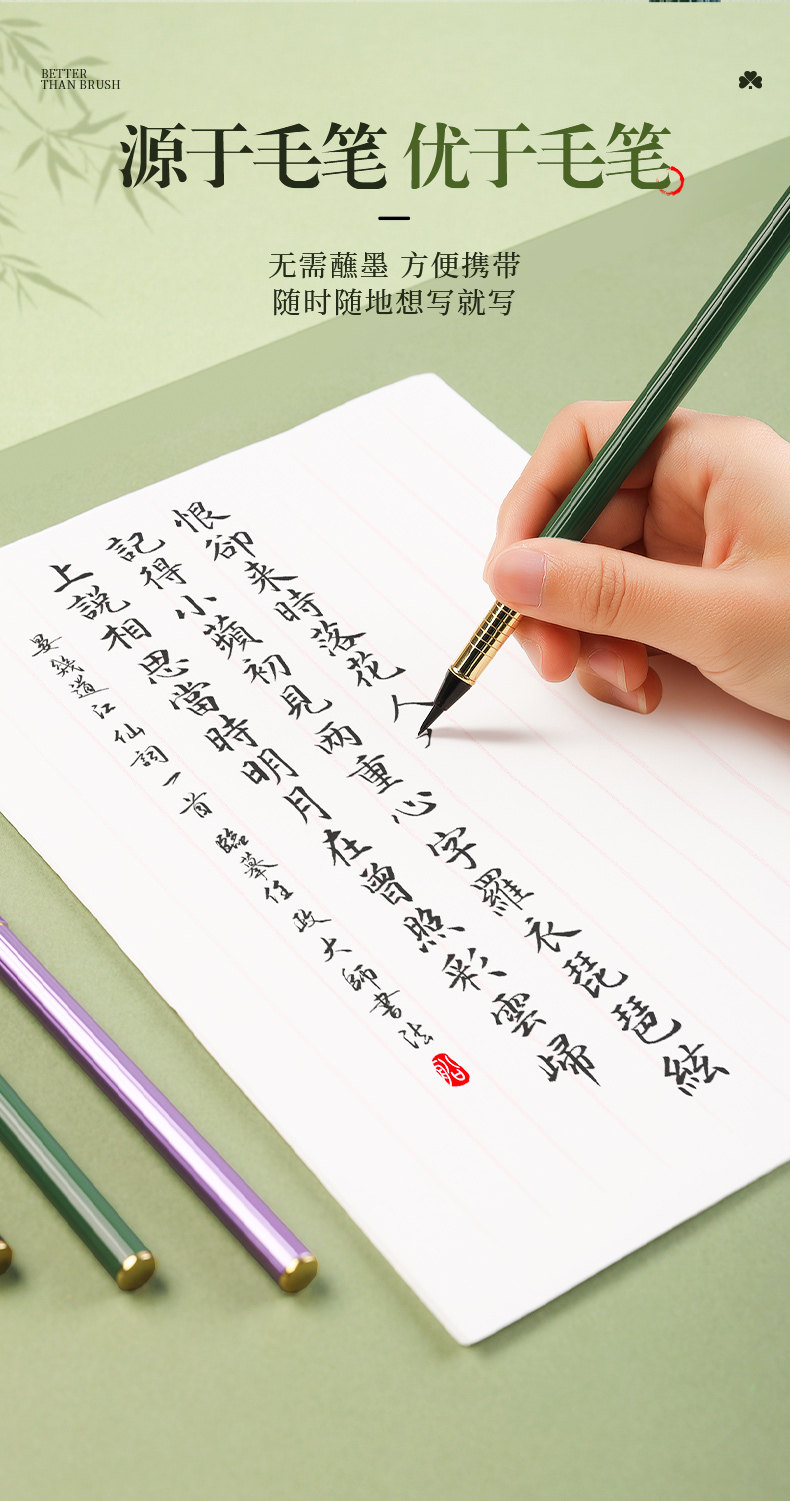 BETTER
THAN BRUSH
源于毛笔 优于毛笔
无需蘸墨 方便携带
随时随地想写就写
恨卻来時落花人
記得小蘋初見两重心字羅衣琵琶絃
上説相思當時明月在曾照彩雲歸
晏幾道江仙詞一首 臨摹任政大師書法